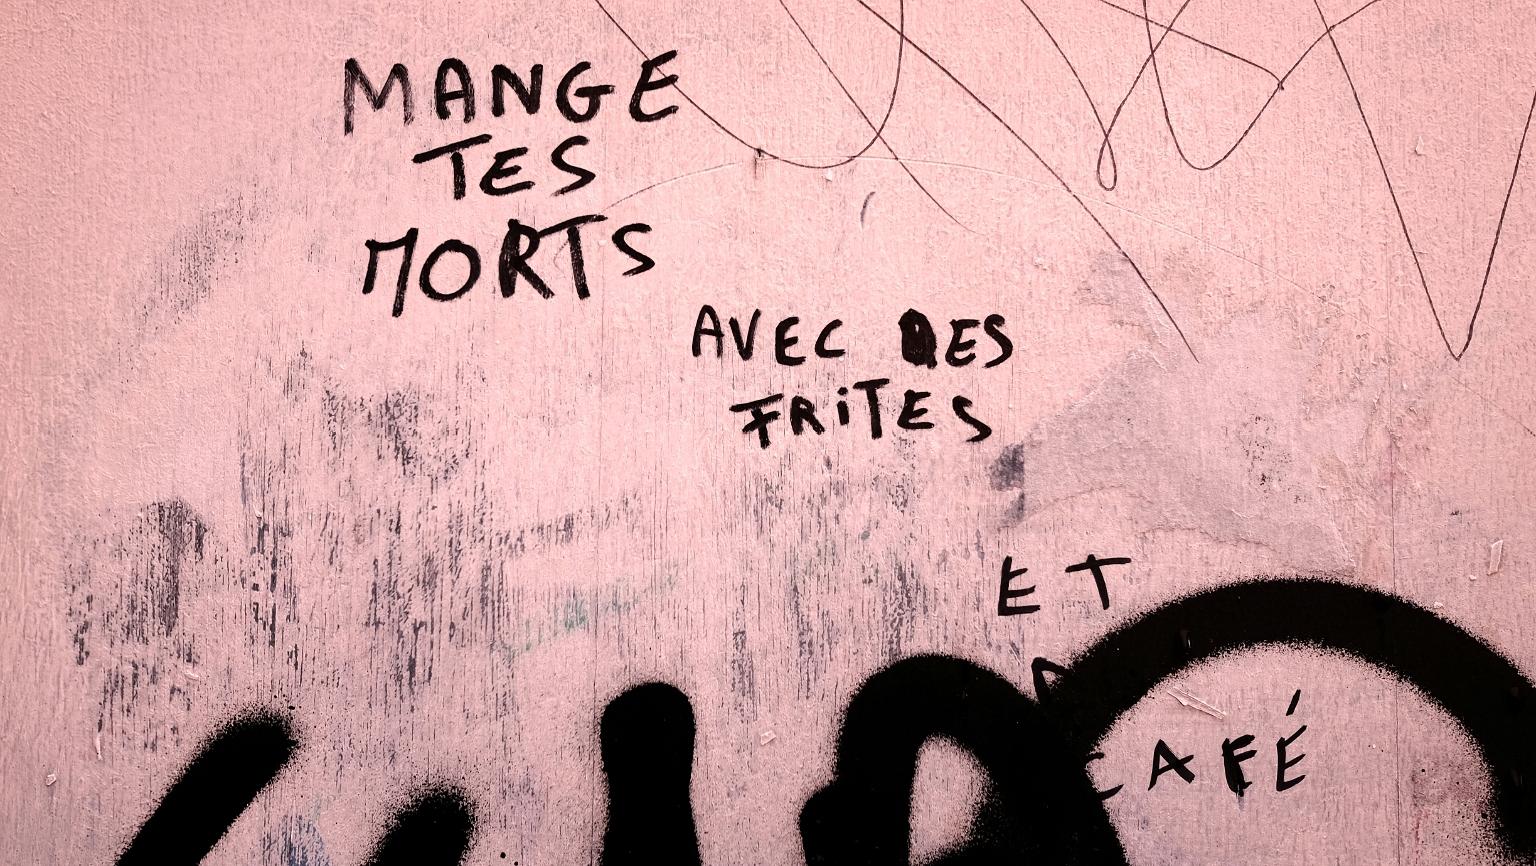 MANGE
TES
MORTS
AVEC DES
FRiTES
ET
CAFÉ